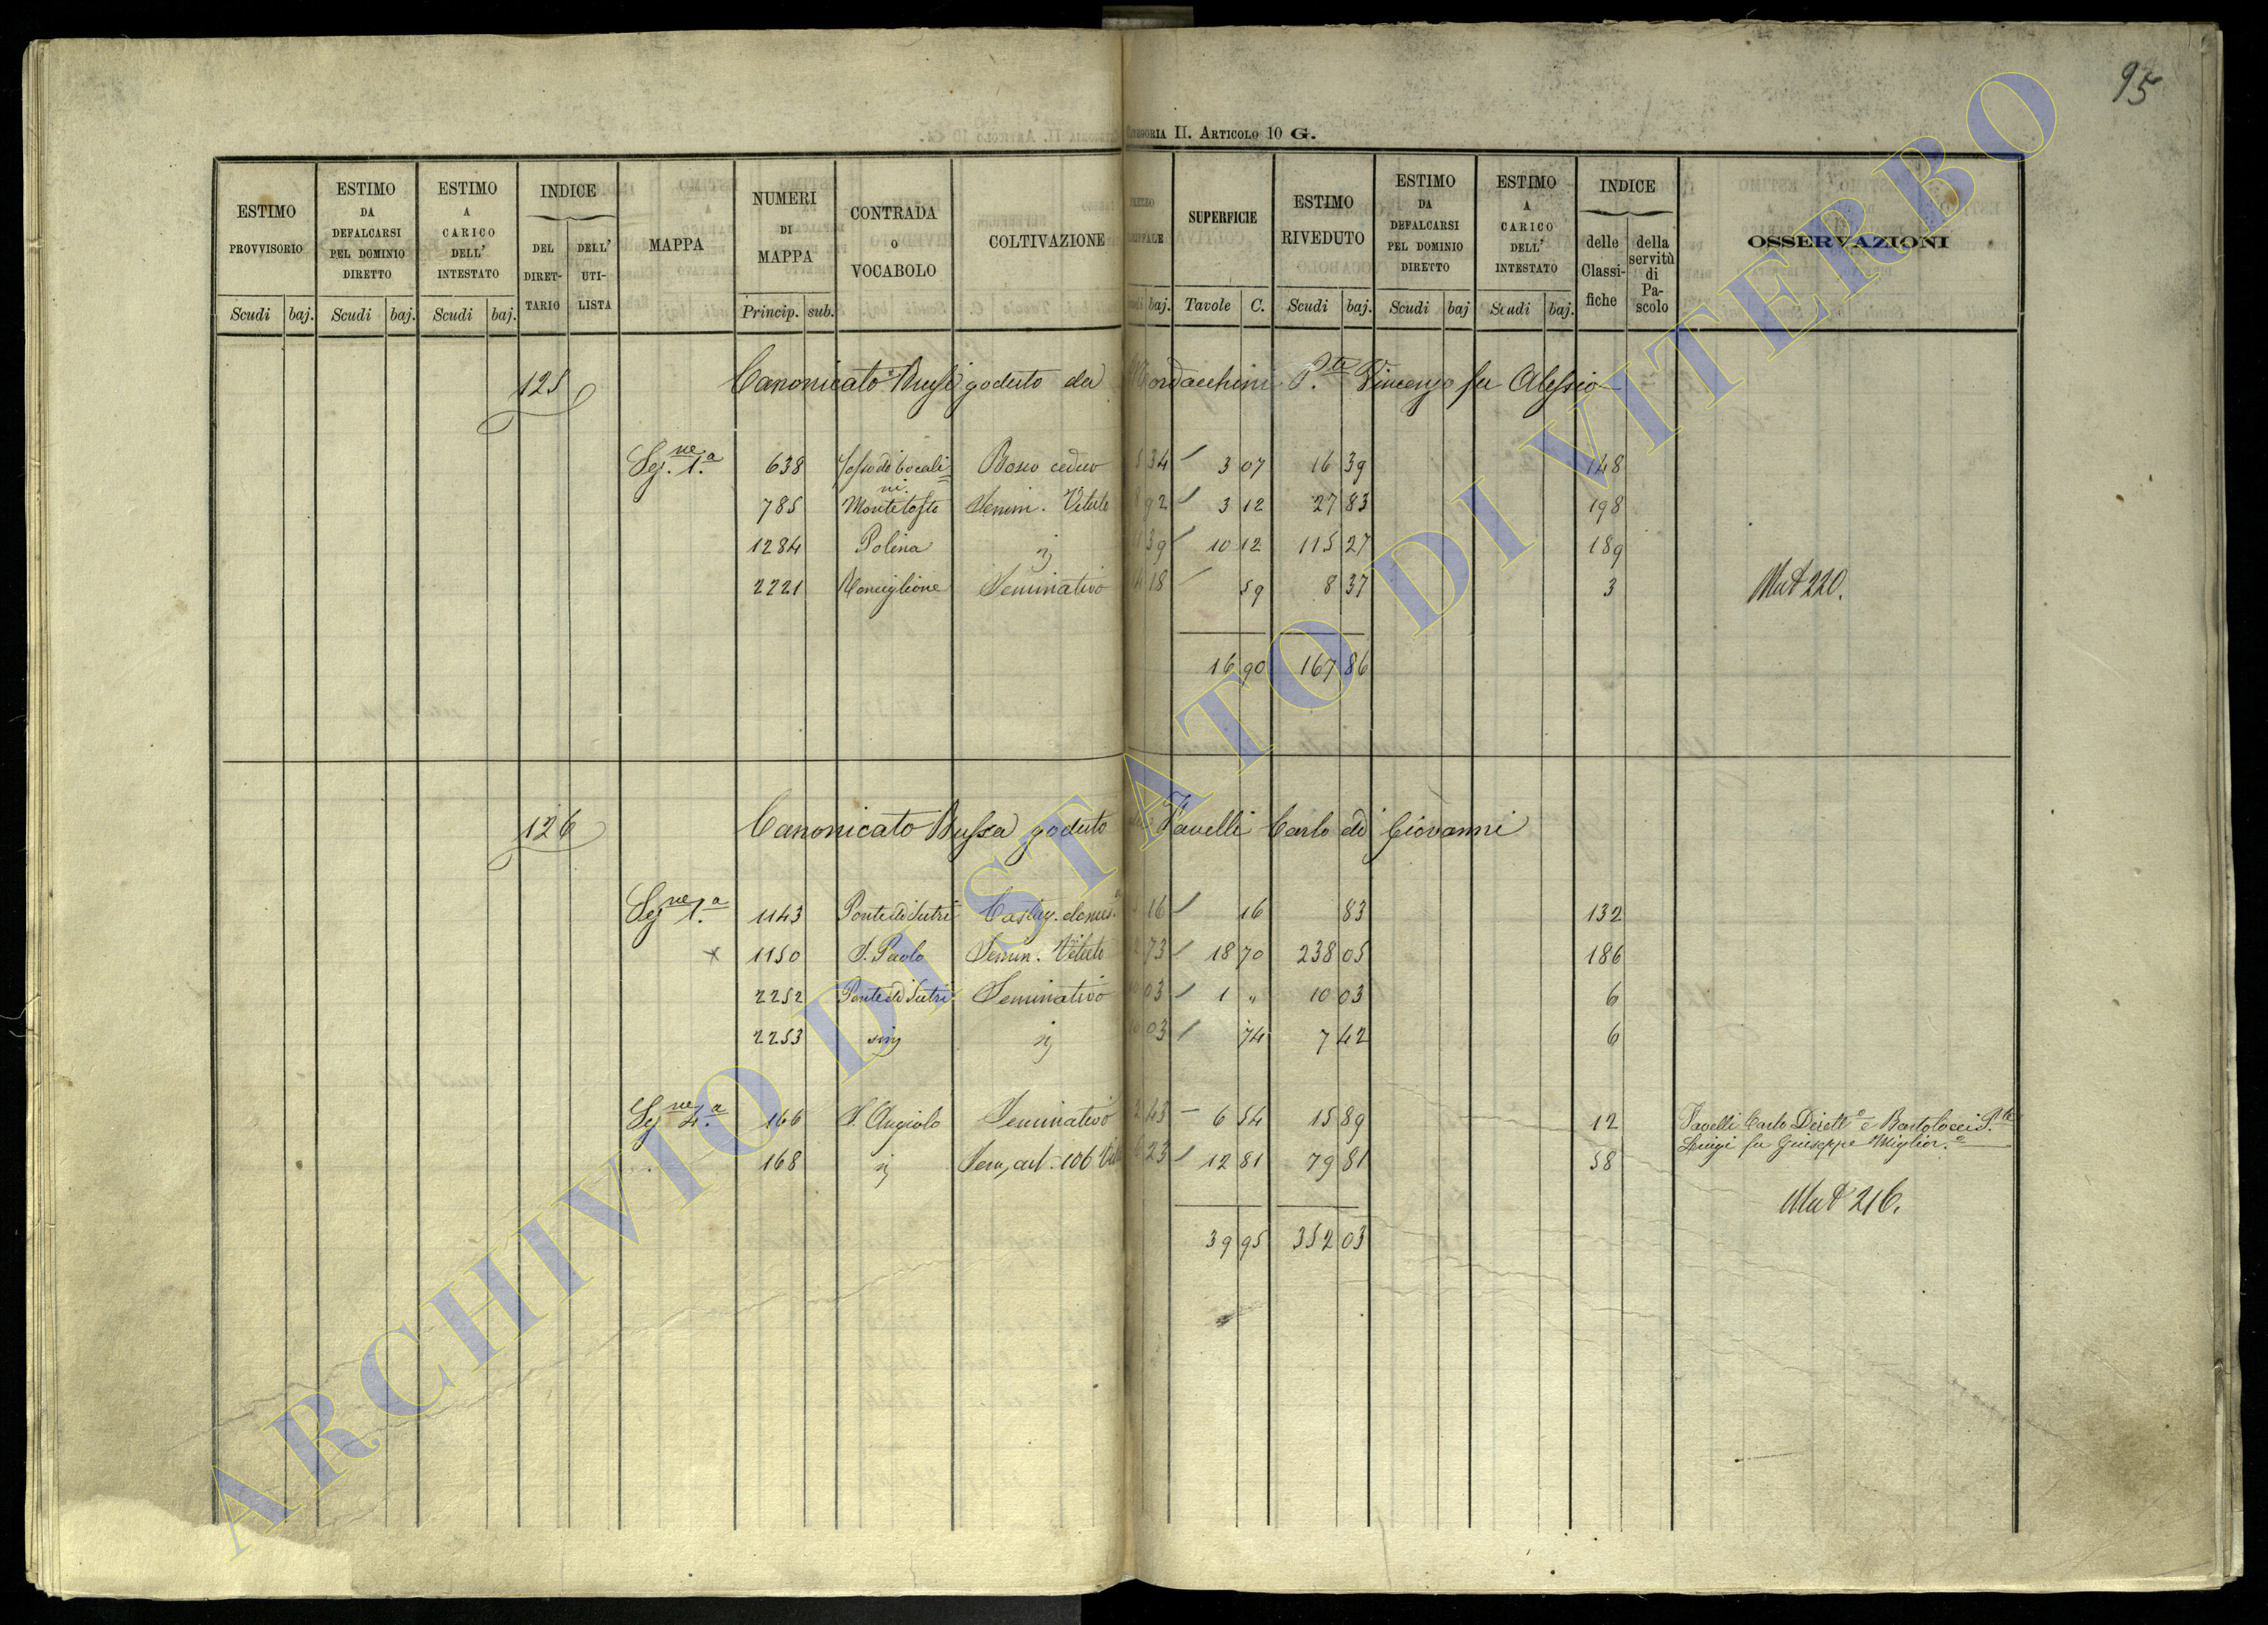 95
CATEGORIA II. ARTICOLO 10 G.
ESTIMO PROVVISORIO
ESTIMO DA DEFALCARSI PEL DOMINIO DIRETTO
ESTIMO A CARICO DELL' INTESTATO
INDICE
DEL DIRET-TARIO
DELL' UTI-LISTA
MAPPA
NUMERI DI MAPPA
CONTRADA O VOCABOLO
COLTIVAZIONE
SUPERFICIE
ESTIMO RIVEDUTO
ESTIMO DA DEFALCARSI PEL DOMINIO DIRETTO
ESTIMO A CARICO DELL' INTESTATO
INDICE
delle Classi-fiche
della servitù di Pa-scolo
OSSERVAZIONI
Scudi baj. Scudi baj. Scudi baj. Princip. sub. baj. Tavole C. Scudi baj. Scudi baj Scudi baj.
125 Canonicato goduto da Mordacchini P.te Vincenzo fu Alessio
Sg.ne 1.a 638 Bosco ceduo 34 3 07 16 39 148
785 Montetosto Semin. Vitato 92 3 12 27 83 198
1284 Polina 39 10 12 115 27 189
2221 Seminativo 18 59 8 37 3 Mut 220.
16 90 167 86
126 Canonicato Bussa goduto Favelli Carlo di Giovanni
Sg.ne 1.a 1143 Ponte di Sutri 16 16 83 132
1150 S. Paolo Semin. Vitato 73 18 70 238 05 186
2252 Ponte di Sutri Seminativo 03 1 " 10 03 6
2253 03 74 7 42 6
Sg.ne 4.a 166 S. Angiolo Seminativo 43 6 54 15 89 12 Favelli Carlo Dirett.e e Bartolocci P.te
Luigi fu Giuseppe Miglior.e
168 23 12 81 79 81 58
Mut 216.
39 95 352 03
ARCHIVIO DI STATO DI VITERBO